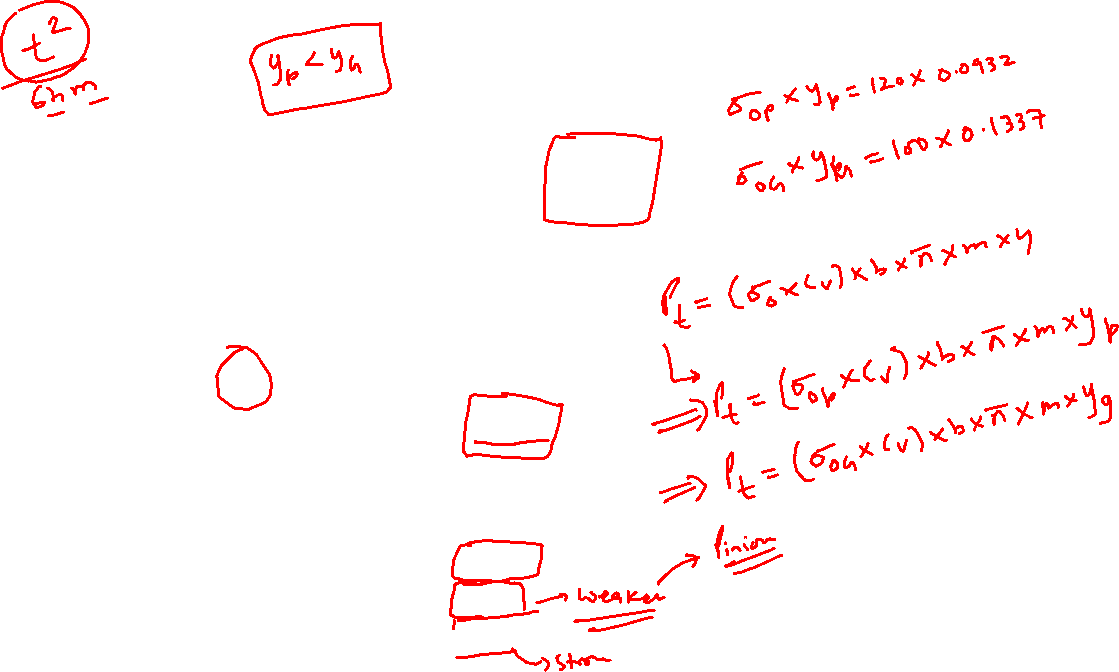 t²
6hm
yp < yG
σop × yp = 120 × 0.0932
σoG × yG = 100 × 0.1337
Pt = (σo × Cv) × b × π × m × y
⇒ Pt = (σop × Cv) × b × π × m × yp
⇒ Pt = (σoG × Cv) × b × π × m × yg
→ weaker → Pinion